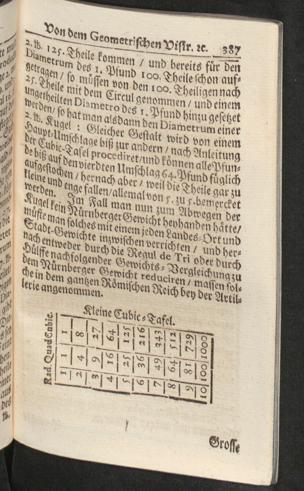 Von dem Geometrischen Visir. ꝛc. 387
2. ℔. 125. Theile kommen / und bereits für den
Diametrum des 1. Pfund 100. Theile schon auf-
getragen / so müssen von den 100. Theiligen nach
25. Theile mit dem Circul genommen / und einem
ungetheilten Diametro des 1. Pfund hinzu gesetzet
werden / so hat man alsdann den Diametrum einer
2. ℔. Kugel : Gleicher Gestalt wird von einem
Haupt-Umschlage biß zur andern / nach Anleitung
der Cubic-Tafel procediret / und können alle Pfun-
de biß auf den vierdten Umschlag 64. Pfund füglich
ausgestochen / hernach aber / weil die Theile gar zu
kleine und enge fallen / allemal von 5. zu 5. bemercket
werden. Im Fall man nun zum Abwegen der
Kugel kein Nürnberger Gewicht beyhanden hätte /
müste man solches mit einem jeden Landes-Ort und
Stadt-Gewichte inzwischen verrichten / und her-
nach entweder durch die Regul de Tri oder durch
Hülffe nachfolgender Gewichts-Vergleichung zu
dem Nürnberger Gewicht reduciren / massen sol-
che in dem gantzen Römischen Reich bey der Artil-
lerie angenommen.
Kleine Cubic-Tafel.
Rad. Quad. Cubic.
1 1 1
2 4 8
3 9 27
4 16 64
5 25 125
6 36 216
7 49 343
8 64 512
9 81 729
10 100 1000
Grosse